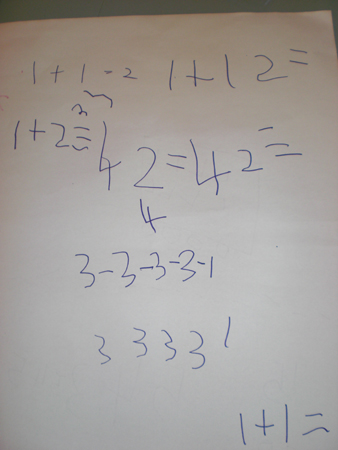 1+1-2 1+1 2=
1+2=
42=42=
4
3-3-3-3-1
3 3 3 3 1
1+1=